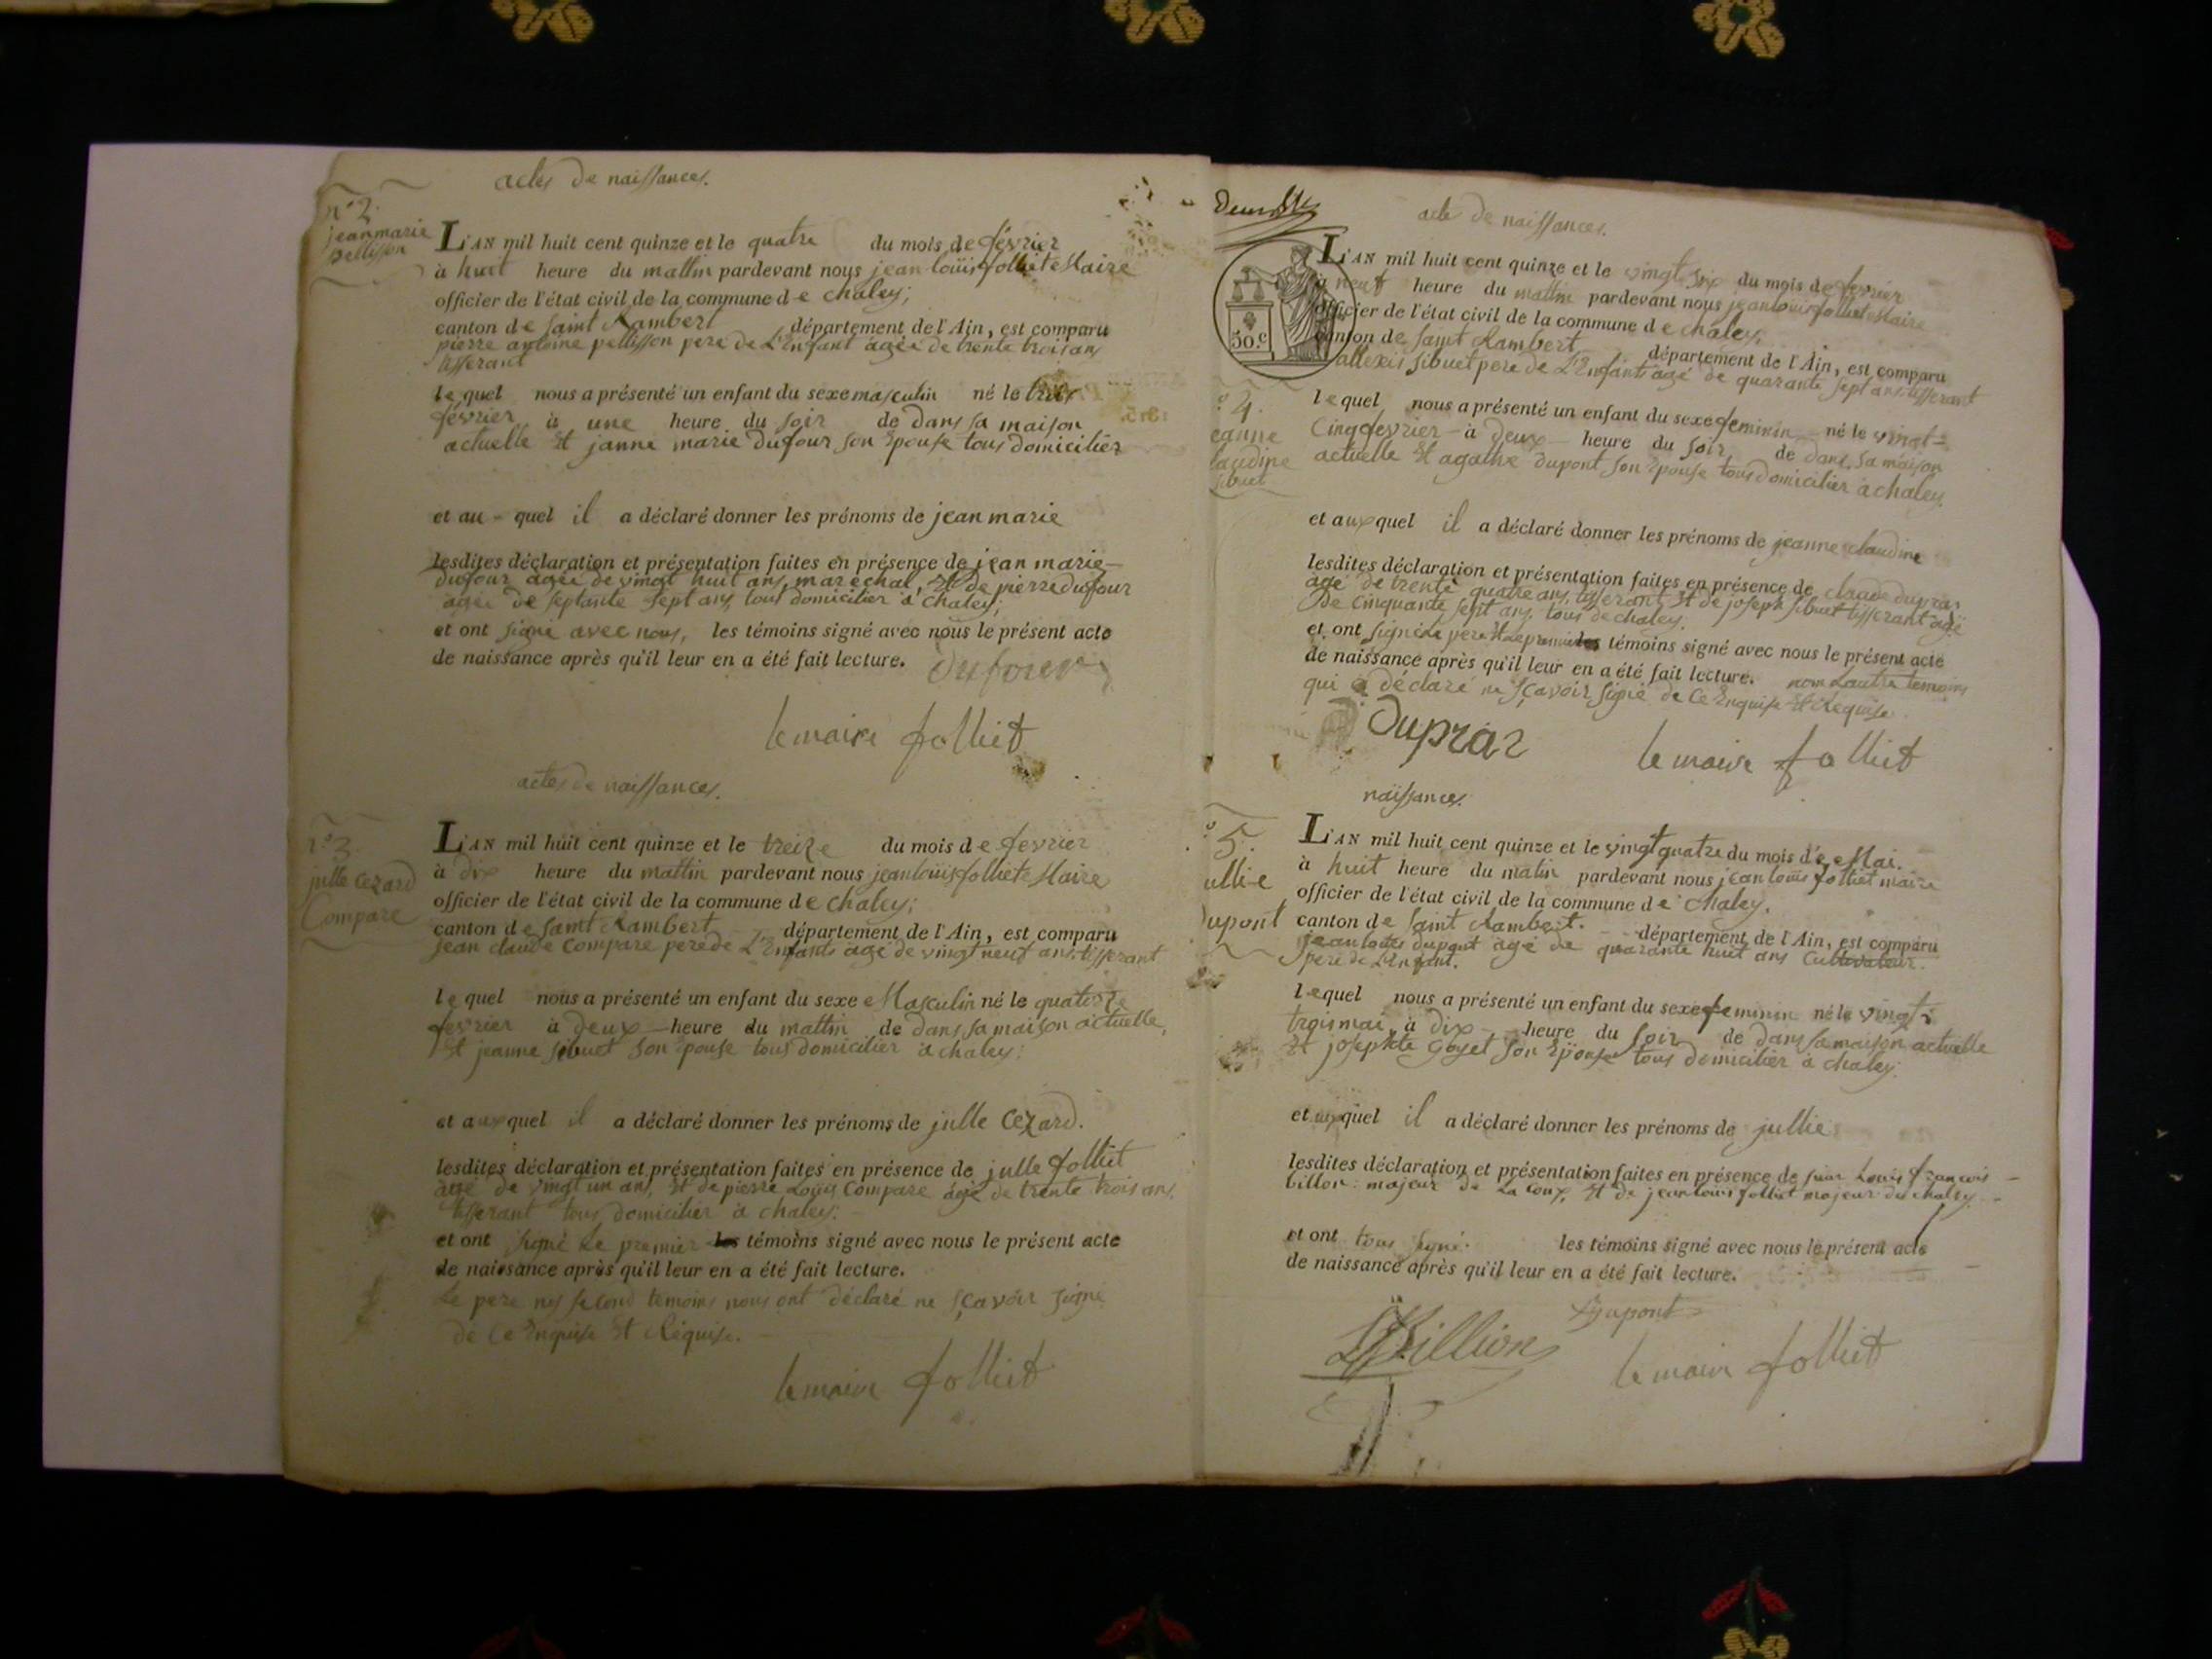 actes de naissances.
n° 2.
jean marie
pellisson
L'AN mil huit cent quinze et le quatre du mois de février
à huit heure du mattin pardevant nous jean louïs folliet Maire
officier de l'état civil de la commune de chaley;
canton de saint Rambert département de l'Ain, est comparu
pierre antoine pellisson pere de L'Enfant agée de trente trois ans
tisserant
lequel nous a présenté un enfant du sexe masculin né le trois
février à une heure du soir de dans sa maison
actuelle Et janne marie dufour son Epouse tous domiciliér
et au-quel il a déclaré donner les prénoms de jean marie
lesdites déclaration et présentation faites en présence de jean marie
dufour agée de vingt huit ans, marechal, Et de pierre dufour
agée de septante sept ans, tous domicilier a chaley;
et ont signé avec nous, les témoins signé avec nous le présent acte
de naissance après qu'il leur en a été fait lecture. dufour
le maire folliet
actes de naissances.
n° 3.
julle cezard
Compare
L'AN mil huit cent quinze et le treize du mois de fevrier
à dix heure du mattin pardevant nous jean louïs folliet Maire
officier de l'état civil de la commune de chaley;
canton de saint Rambert département de l'Ain, est comparu
jean claude compare pere de L'Enfants agé de vingt neuf ans tisserant
lequel nous a présenté un enfant du sexe Masculin né le quatorze
fevrier à deux heure du mattin de dans sa maison actuelle,
Et jeanne sibuet son Epouse tous domicilier à chaley;
et auxquel il a déclaré donner les prénoms de julle cezard.
lesdites déclaration et présentation faites en présence de julle folliet
agé de vingt un ans, Et de pierre Louïs compare agé de trente trois ans,
tisserant tous domicilier à chaley;
et ont signé Le premier les témoins signé avec nous le présent acte
de naissance après qu'il leur en a été fait lecture.
Le pere ny second temoins nous ont déclaré ne sçavoir signe
de ce Enquise Et Réquise.
le maire folliet
acte de naissances.
50.c
L'AN mil huit cent quinze et le vingt six du mois de fevrier
à neuf heure du mattin pardevant nous jean louis folliet Maire
officier de l'état civil de la commune de chaley;
canton de saint Rambert département de l'Ain, est comparu
allexis sibuet pere de L'Enfants agé de quarante sept ans tisserant
° 4.
eanne
laudine
sibuet
lequel nous a présenté un enfant du sexe feminin né le vingt
cinq fevrier à deux heure du soir de dans sa maison
actuelle Et agathe dupont son Epouse tous domicilier à chaley
et auxquel il a déclaré donner les prénoms de jeanne claudine
lesdites déclaration et présentation faites en présence de claude dupraz
agé de trente quatre ans, tisserant, Et de joseph sibuet tisserant agé
de cinquante sept ans, tous de chaley.
et ont signé Le pere Et Le premier les témoins signé avec nous le présent acte
de naissance après qu'il leur en a été fait lecture. non Lautre temoins
qui a déclaré ne sçavoir signé de ce Enquise Et Requise.
Dupraz
le maire folliet
naissances.
° 5.
ullie
Dupont
L'AN mil huit cent quinze et le vingt quatre du mois de Mai.
à huit heure du matin pardevant nous jean louis folliet maire
officier de l'état civil de la commune de chaley.
canton de saint Rambert. département de l'Ain, est comparu
jean louis dupont agé de quarante huit ans cultivateur.
pere de L'Enfant.
lequel nous a présenté un enfant du sexe feminin né le vingt
trois mai à dix heure du soir de dans sa maison actuelle
Et josephte goyet son Epouse tous domicilier à chaley.
et auxquel il a déclaré donner les prénoms de jullie
lesdites déclaration et présentation faites en présence de Louis françois
billon majeur de La Et de jean louis folliet majeur de chaley.
et ont tous signé. les témoins signé avec nous le présent acte
de naissance après qu'il leur en a été fait lecture.
Billion
Dupont
le maire folliet